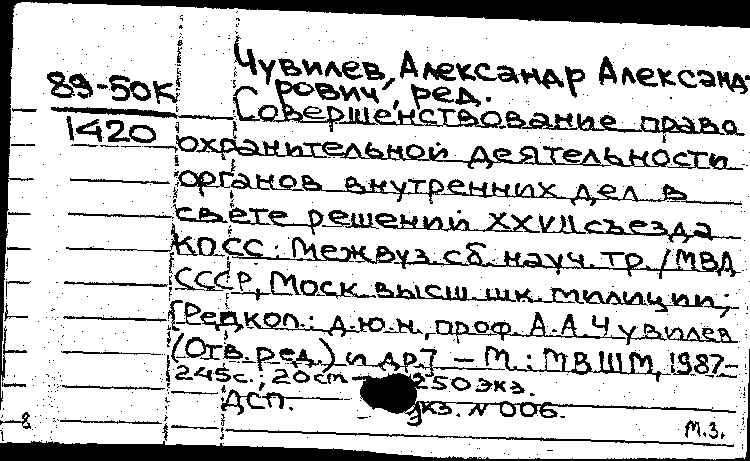 Чувилев, Александр Александ-
89-50К рович, ред.
1420 Совершенствование право
охранительной деятельности
органов внутренних дел в
свете решений XXVII съезда
КПСС: Межвуз. сб. науч. тр. / МВД
СССР, Моск. высш. шк. милиции;
[Редкол.: д.ю.н., проф. А.А. Чувилев
(Отв. ред.) и др.] – М.: МВШМ, 1987-
245с.; 20см – 250 экз.
ДСП. экз. N 006.
8 М.З.